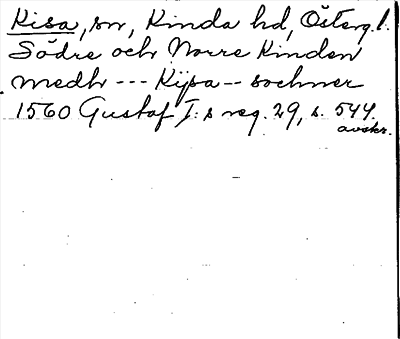 Kisa, sn, Kinda hd, Österg. l.
Södre och Norre Kinden
medh --- Kijsa -- sochner
1560 Gustaf I:s reg. 29, s. 544.
avskr.